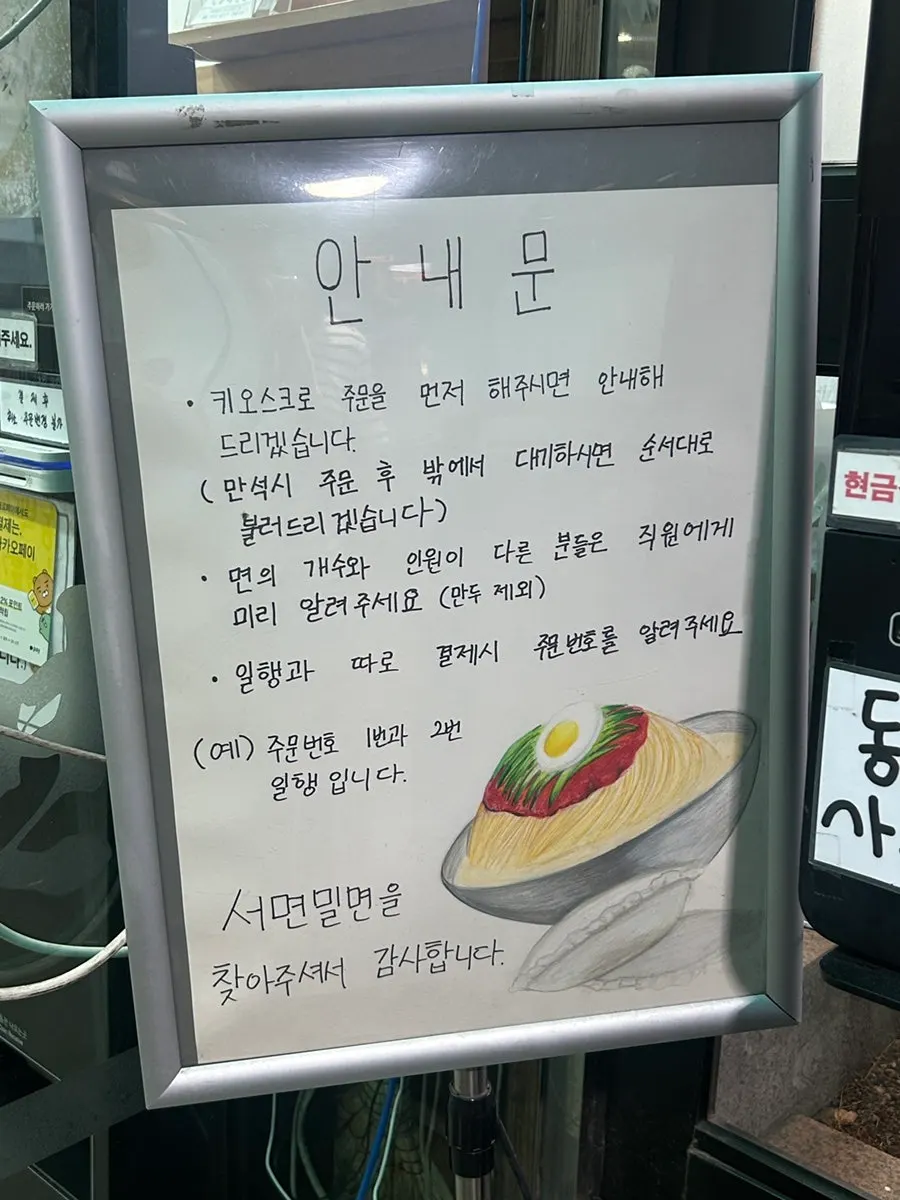 안내문
• 키오스크로 주문을 먼저 해주시면 안내해
드리겠습니다.
(만석시 주문 후 밖에서 대기하시면 순서대로
불러드리겠습니다)
• 면의 개수와 인원이 다른 분들은 직원에게
미리 알려주세요 (만두 제외)
• 일행과 따로 결제시 주문번호를 알려주세요
(예) 주문번호 1번과 2번
일행입니다.
서면밀면을
찾아주셔서 감사합니다.
주세요.
카오페이
현금